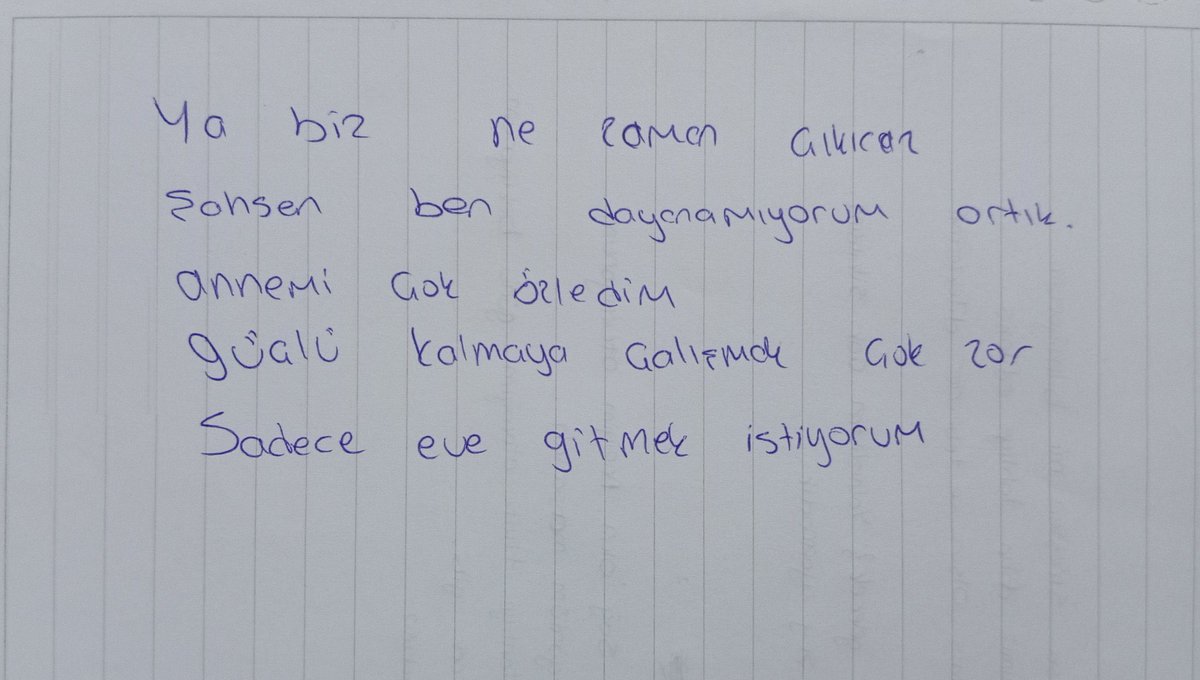 Ya biz ne zaman çıkıcaz
Şahsen ben dayanamıyorum artık.
annemi çok özledim
güçlü kalmaya çalışmak çok zor
Sadece eve gitmek istiyorum